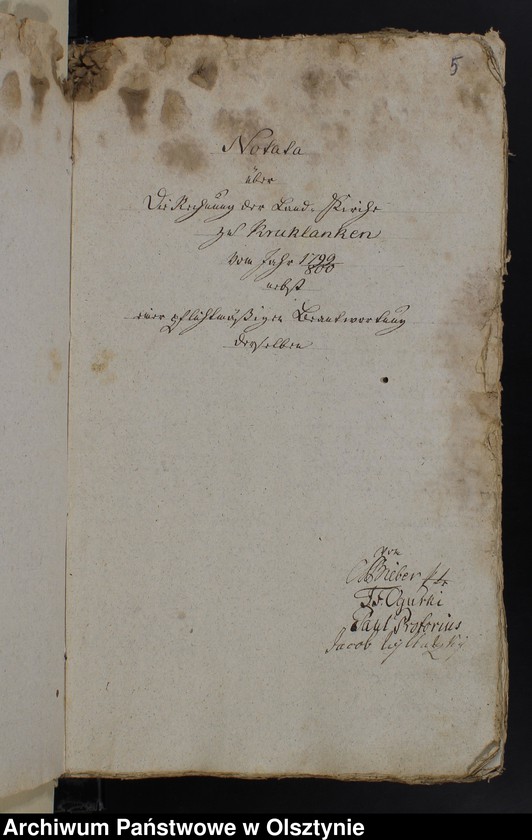 5
Notata
über
Die Rechnung der Land-Kirche
zu Kruklanken
vom Jahr 1799/800
nebst
einer pflichtmäßigen Beantwortung
derselben
von
Bieber
Paul
Jacob
Archiwum Państwowe w Olsztynie